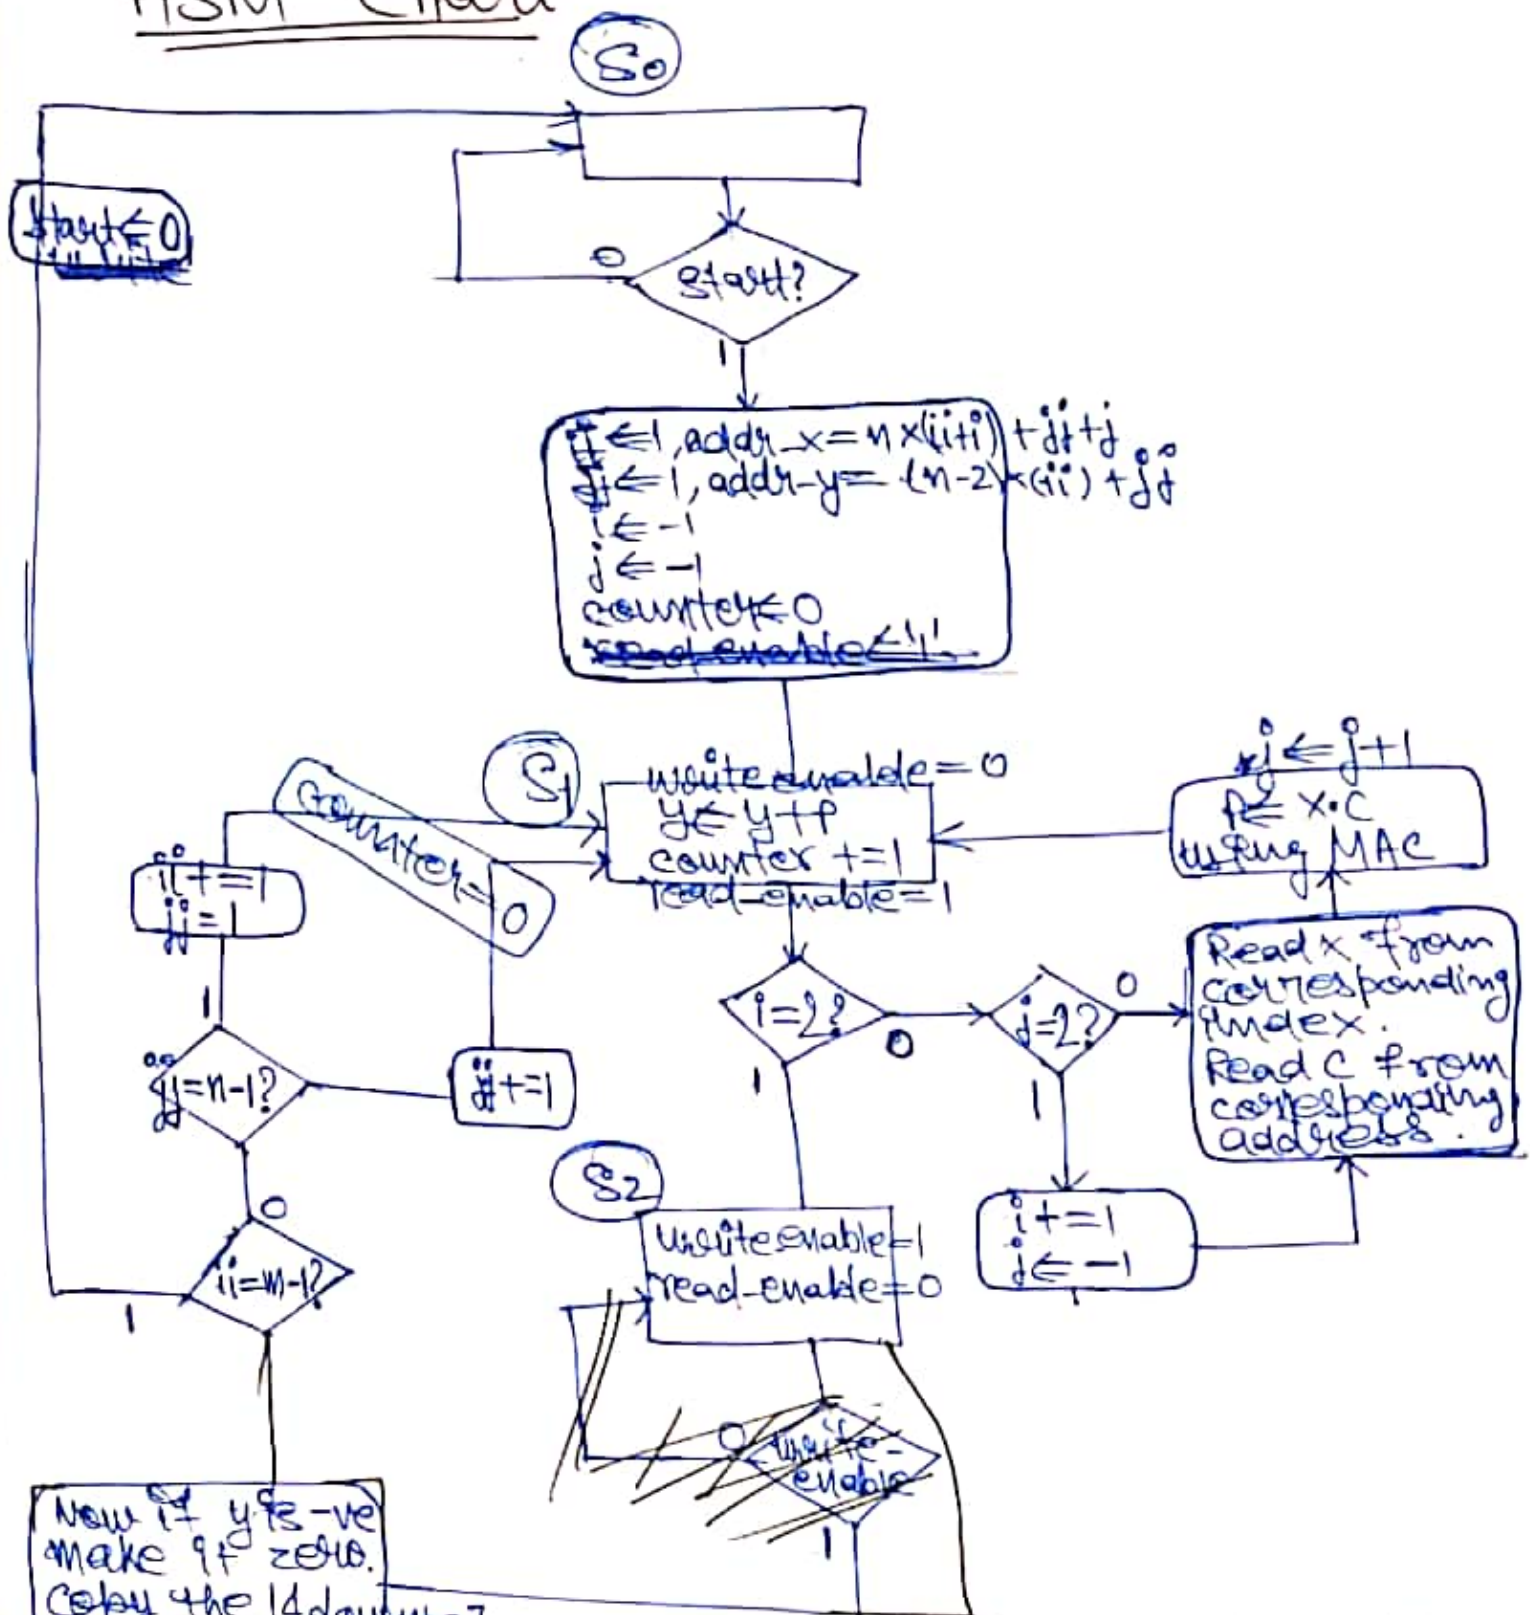 ASM Chart
S0
start ⇐ 0
0
start?
1
⇐ 1, addr_x = n×(ii+i) + jj+j
jj ⇐ 1, addr-y = (n-2)×(ii) + jj
i ⇐ -1
j ⇐ -1
counter ⇐ 0
read-enable ⇐ '1'
S1
write enable = 0
y ⇐ y + P
counter += 1
read-enable = 1
j ⇐ j+1
P ⇐ X·C
using MAC
counter = 0
ii += 1
jj = 1
1
jj = n-1?
jj += 1
i = 2?
0
1
j = 2?
0
1
Read x from
corresponding
index.
Read C from
corresponding
address.
i += 1
j ⇐ -1
S2
write enable = 1
read-enable = 0
0
ii = m-1?
1
0
write-
enable
1
Now if y is -ve
make it zero.
Copy the 14